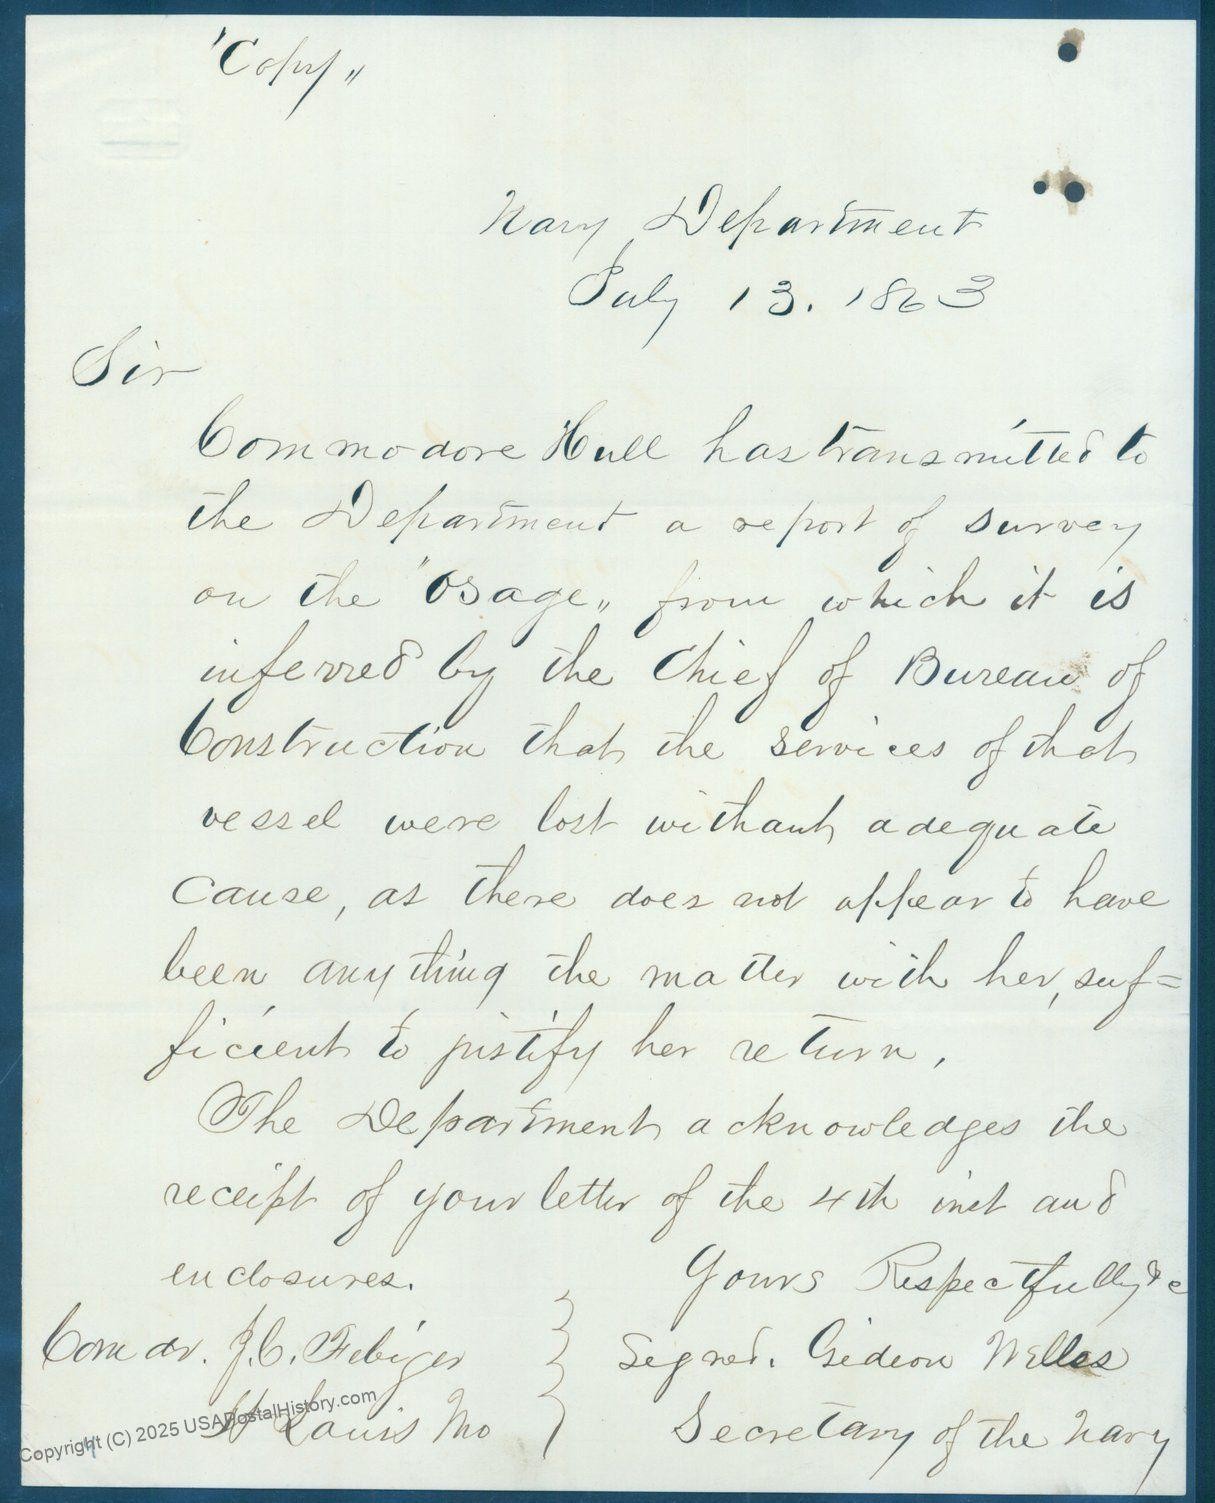 "Copy"
Navy Department
July 13. 1863
Sir
Commodore Hull has transmitted to
the Department a report of survey
on the "Osage" from which it is
inferred by the Chief of Bureau of
Construction that the services of that
vessel were lost without adequate
cause, as there does not appear to have
been anything the matter with her, suf=
ficient to justify her return,
The Department acknowledges the
receipt of your letter of the 4th inst and
enclosures.
Yours Respectfully &c
Comdr. J.C. Febiger
St Louis Mo
Signed. Gideon Welles
Secretary of the Navy
Copyright (C) 2025 USAPostalHistory.com